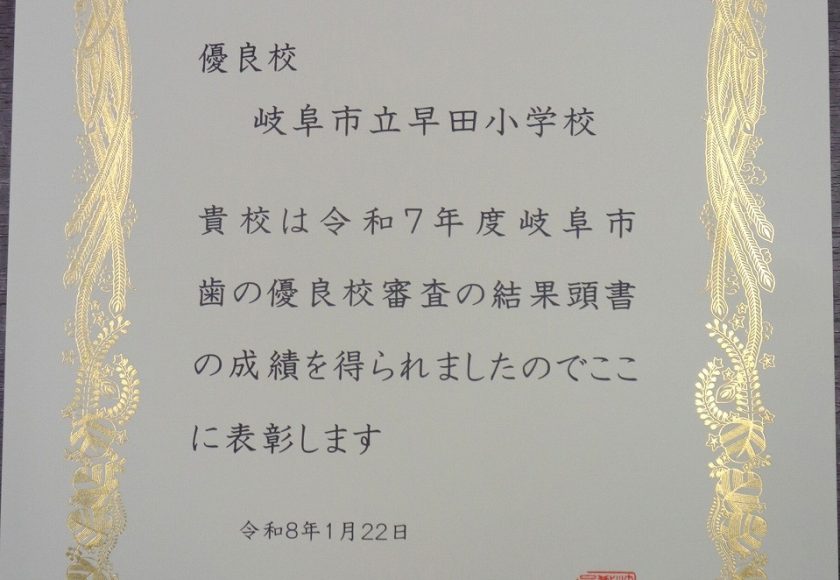 優良校
岐阜市立早田小学校
貴校は令和7年度岐阜市
歯の優良校審査の結果頭書
の成績を得られましたのでここ
に表彰します
令和8年1月22日